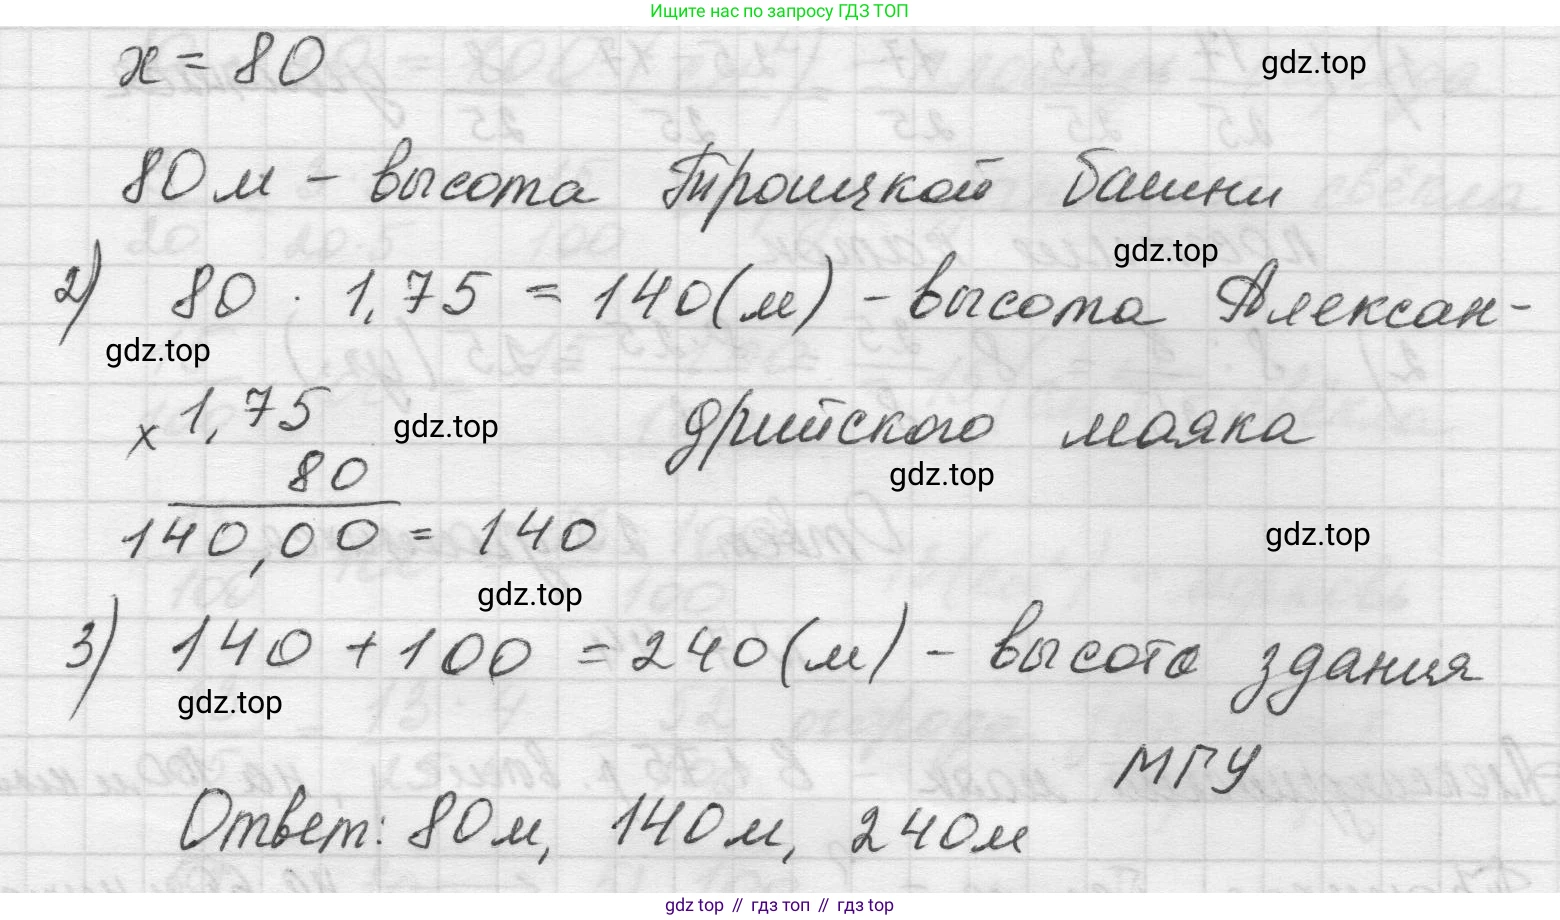 Ищите нас по запросу ГДЗ ТОП
x = 80
gdz.top
80 м - высота Троицкой башни
gdz.top
2) 80 · 1,75 = 140 (м) - высота Алексан-
gdz.top
× 1,75
gdz.top
дрийского маяка
80
gdz.top
140,00 = 140
gdz.top
gdz.top
3) 140 + 100 = 240 (м) - высота здания
gdz.top
МГУ
Ответ: 80 м, 140 м, 240 м
gdz top // гдз топ // гдз top